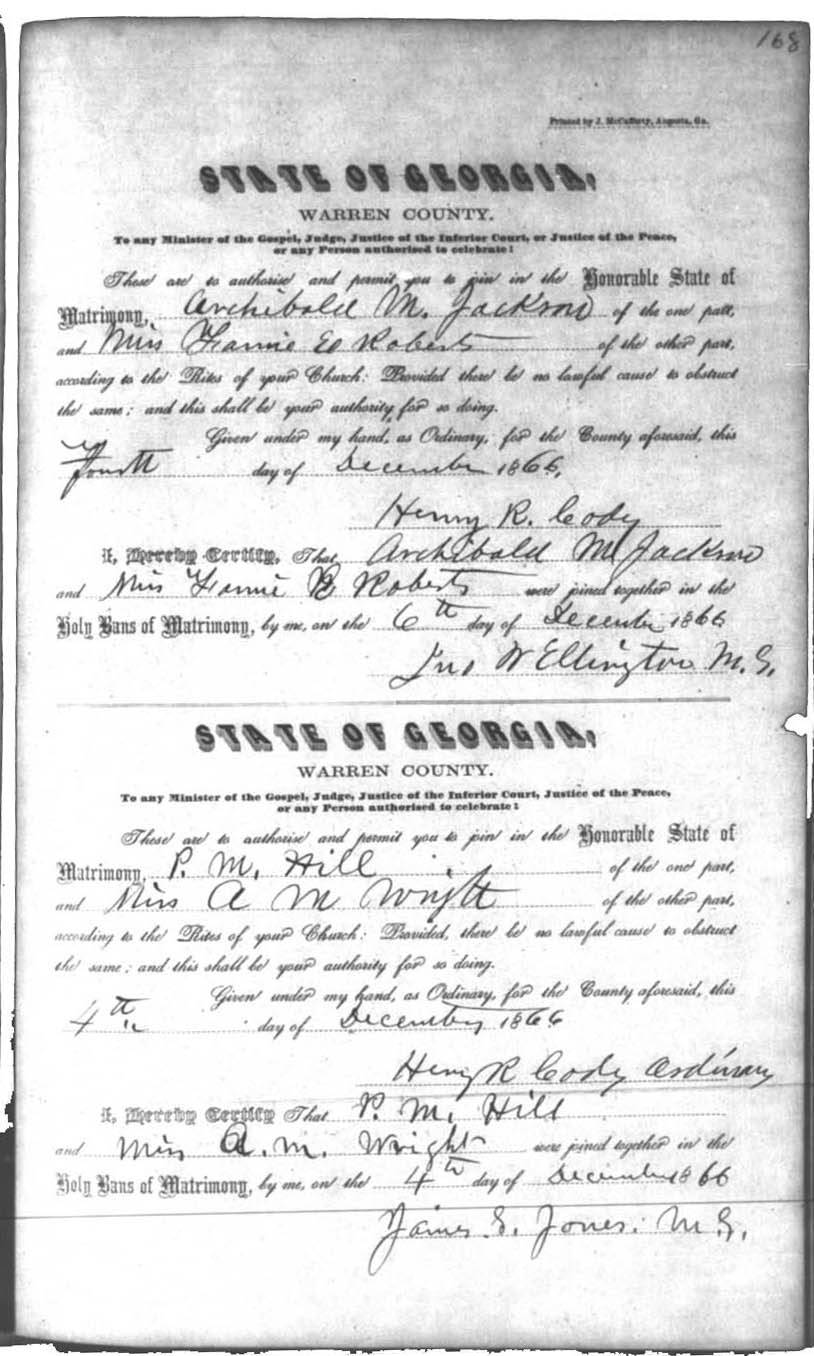 168
Printed by J. McCafferty, Augusta, Ga.
STATE OF GEORGIA,
WARREN COUNTY.
To any Minister of the Gospel, Judge, Justice of the Inferior Court, or Justice of the Peace,
or any Person authorised to celebrate:
These are to authorise and permit you to join in the Honorable State of
Matrimony, Archibald M. Jackson of the one part,
and Miss Fannie E Roberts of the other part,
according to the Rites of your Church: Provided there be no lawful cause to obstruct
the same; and this shall be your authority for so doing.
Given under my hand, as Ordinary, for the County aforesaid, this
Fourth day of December 1866,
Henry R. Cody
I, Hereby Certify, That Archibald M Jackson
and Miss Fannie E Roberts were joined together in the
Holy Bans of Matrimony, by me, on the 6th day of December 1866
Jno W Ellington M. G.
STATE OF GEORGIA,
WARREN COUNTY.
To any Minister of the Gospel, Judge, Justice of the Inferior Court, Justice of the Peace,
or any Person authorised to celebrate:
These are to authorise and permit you to join in the Honorable State of
Matrimony, P. M. Hill of the one part,
and Miss A M Wright of the other part,
according to the Rites of your Church: Provided, there be no lawful cause to obstruct
the same; and this shall be your authority for so doing.
Given under my hand, as Ordinary, for the County aforesaid, this
4th day of December 1866
Henry R Cody Ordinary
I, Hereby Certify That P. M. Hill
and Miss A. M. Wright were joined together in the
Holy Bans of Matrimony, by me, on the 4th day of December 1866
James S. Jones. M. G.